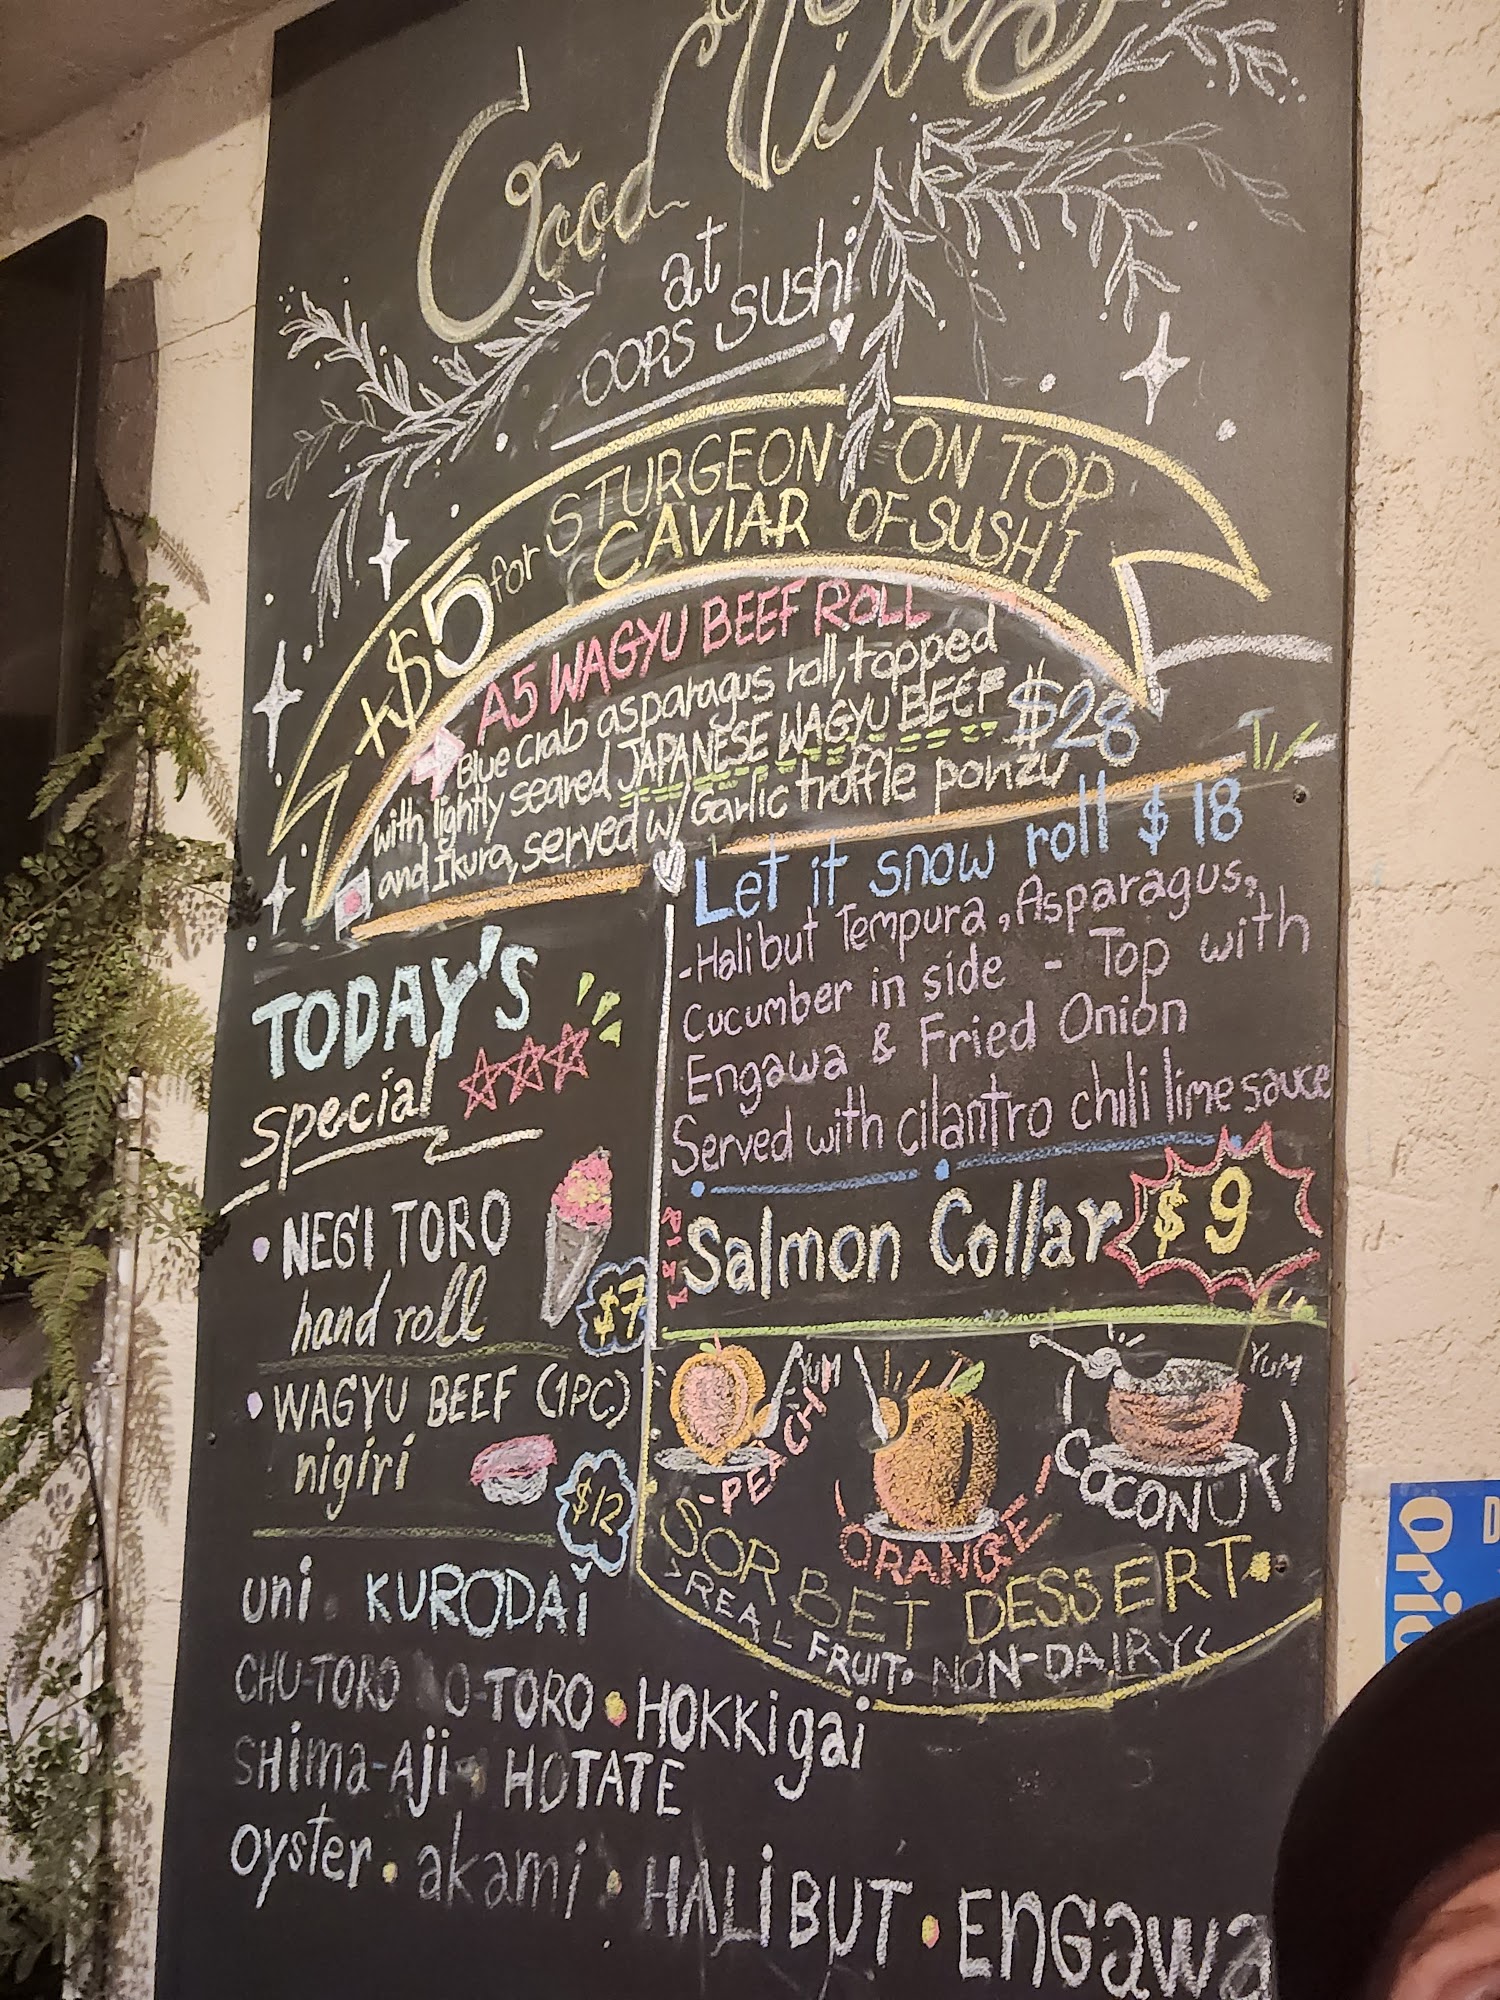 Good Vibes
at
OOPS SUSHI
+$5 for STURGEON CAVIAR ON TOP OF SUSHI
A5 WAGYU BEEF ROLL
Blue Crab asparagus roll, topped
with lightly seared JAPANESE WAGYU BEEF $28
and Ikura, served w/ Garlic truffle ponzu
Let it snow roll $18
-Halibut Tempura, Asparagus,
Cucumber in side - Top with
Engawa & Fried Onion
Served with cilantro chili lime sauce
Salmon Collar $9
TODAY'S
special
• NEGI TORO
hand roll $7
• WAGYU BEEF (1PC)
nigiri $12
YUM
YUM
-PEACH-
ORANGE
COCONUT
SORBET DESSERT
>REAL FRUIT. NON-DAIRY<
uni • KURODAi
CHU-TORO O-TORO • HOKKigai
SHima-Aji • HOTATE
oyster • akami • HALiBUT • ENGawa
Orio
D